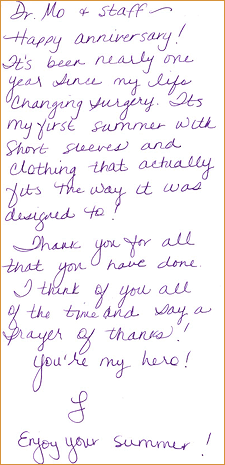 Dr. Mo & Staff ~
Happy anniversary!
It's been nearly one
year since my life
changing surgery. Its
my first summer with
short sleeves and
clothing that actually
fits the way it was
designed to!
Thank you for all
that you have done.
I think of you all
of the time and say a
prayer of thanks!
You're my hero!
Enjoy your summer!